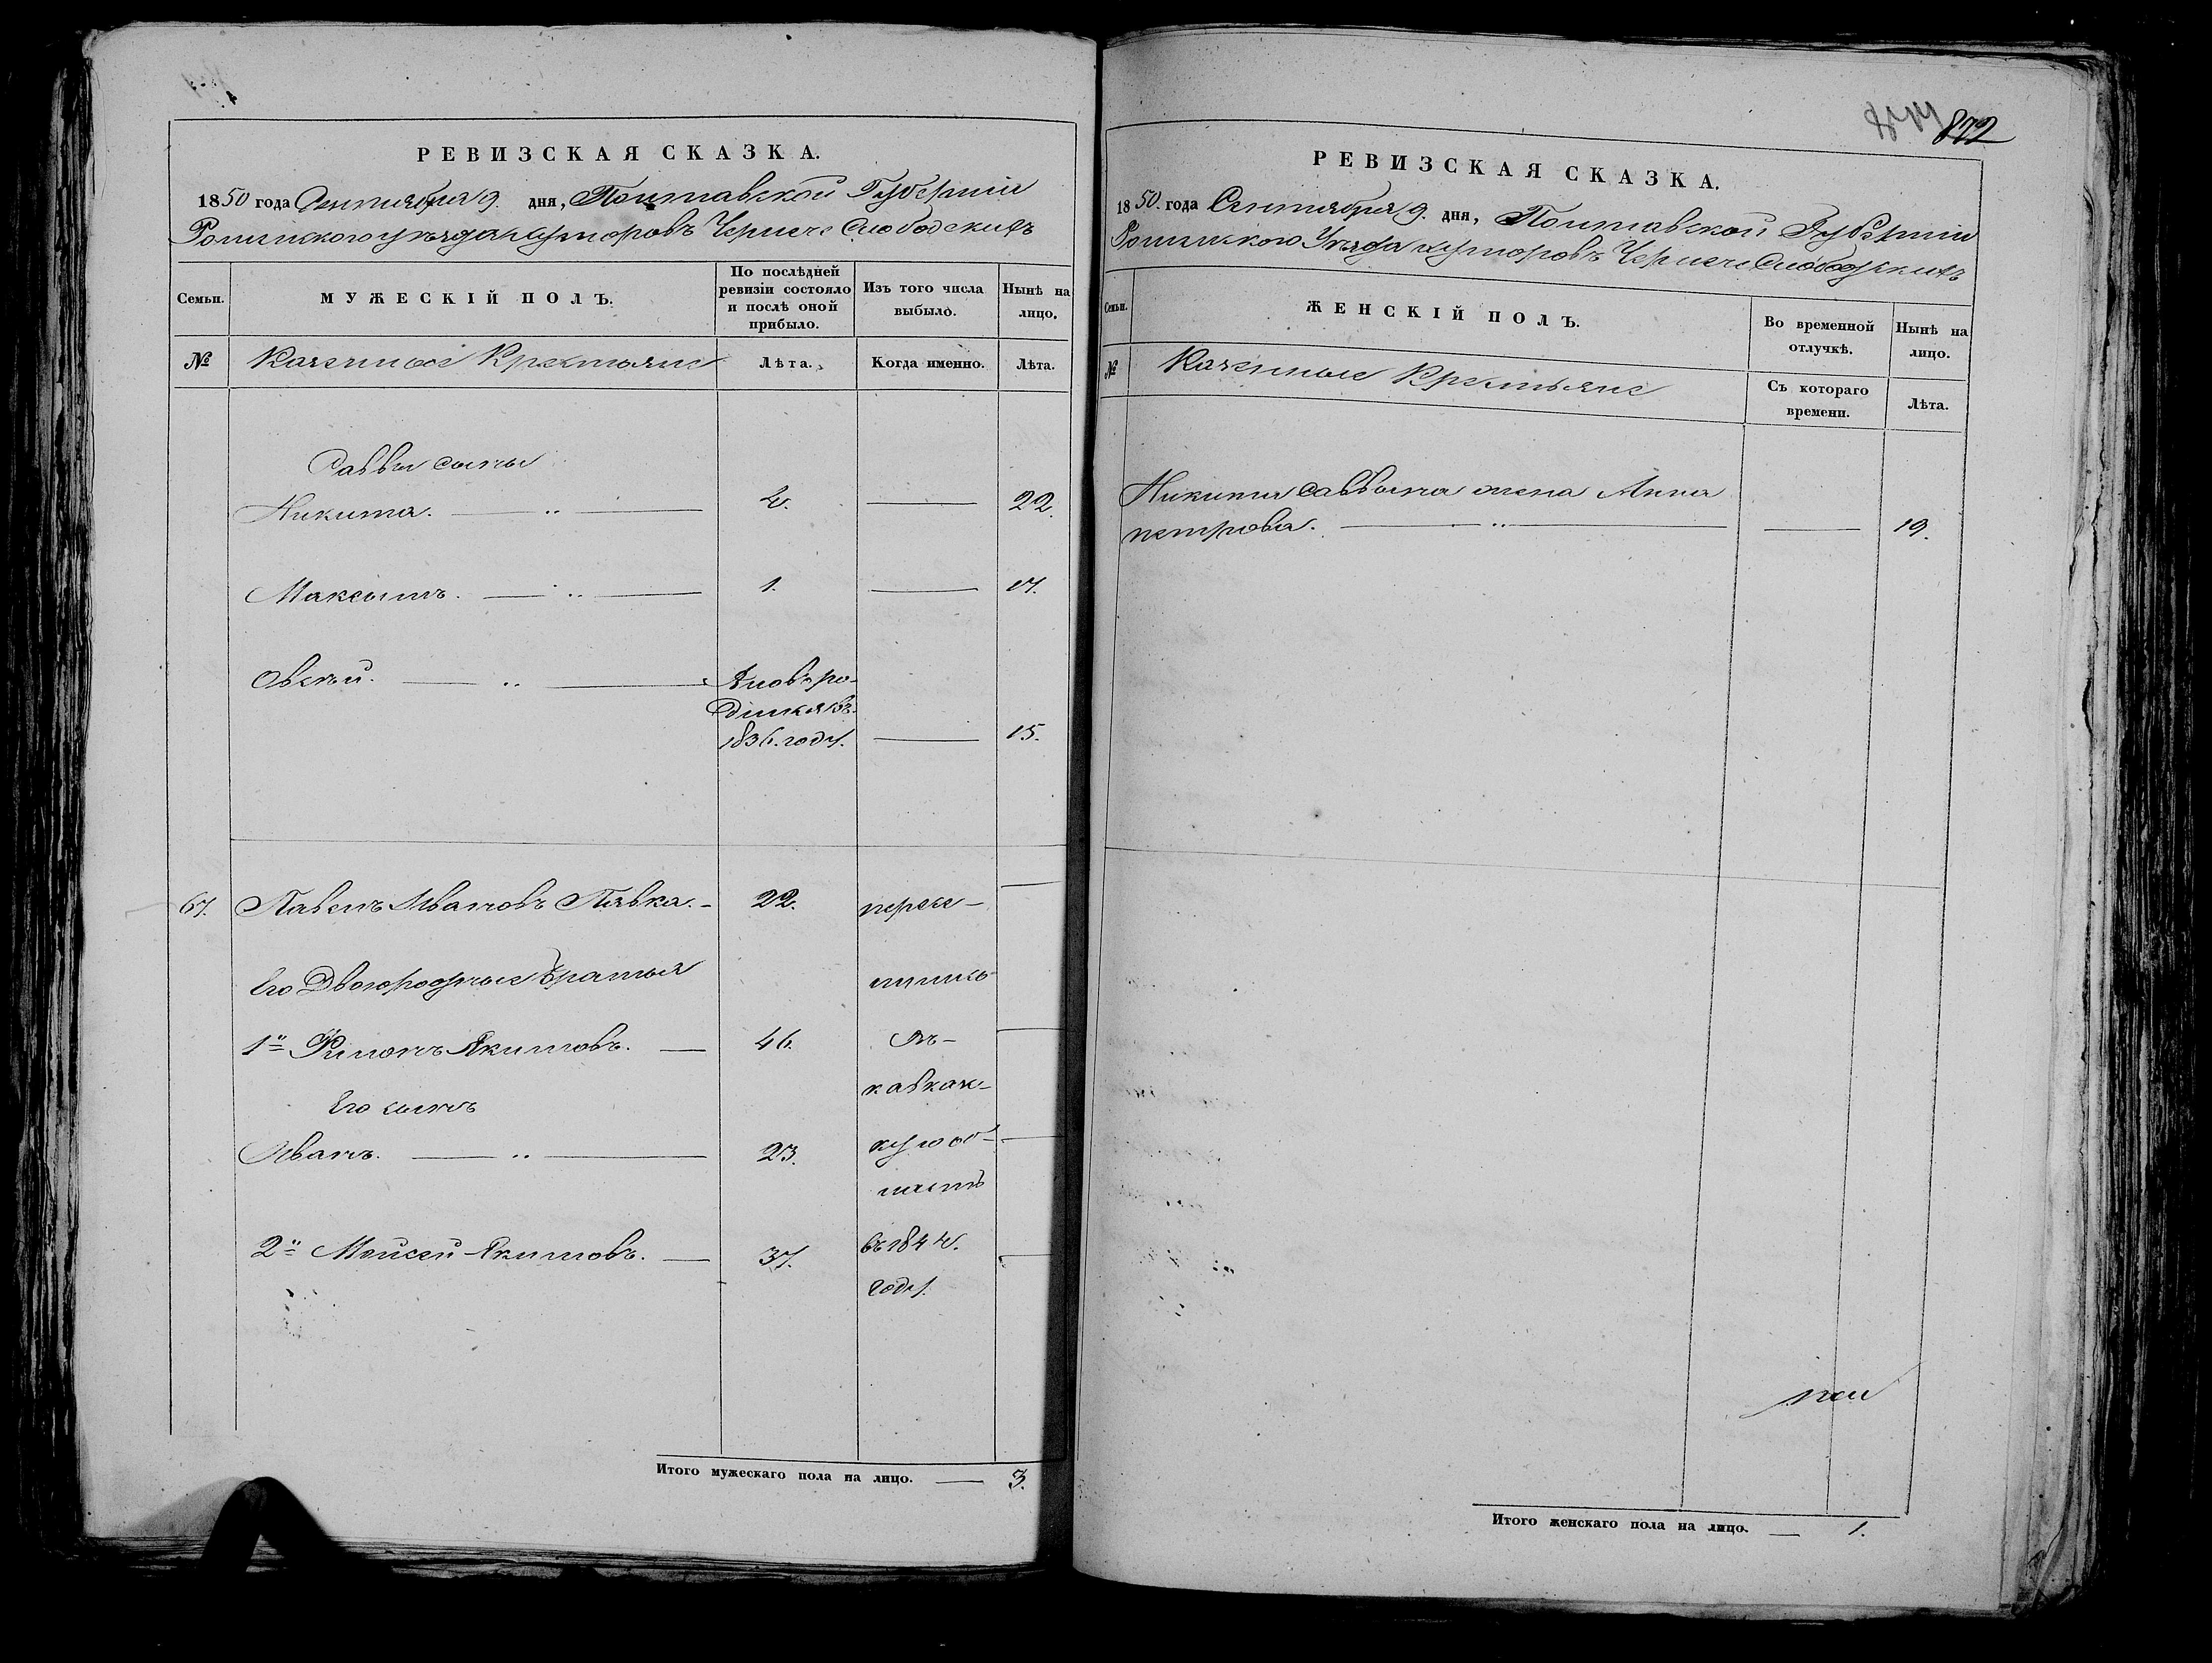 РЕВИЗСКАЯ СКАЗКА.
1850 года Сентября 9. дня, Полтавской Губерніи
Роменского уѣзда хуторовъ Чернече Слободскихъ
Семьи.
МУЖЕСКІЙ ПОЛЪ.
По послѣдней ревизіи состояло и послѣ оной прибыло.
Изъ того числа выбыло.
Нынѣ на лицо.
№
Казенные Крестьяне
Лѣта.
Когда именно.
Лѣта.
Саввы сыны
Никита. 4. 22.
Максимъ. 1. 17.
Овсѣй. Сновъ ро-
дился въ
1836. году. 15.
67. Павелъ Ивановъ Пявка. 22. пересе-
Его Двоюродные братья лились
1й Филонъ Якимовъ. 46. въ
кавказ-
Его сынъ
Иванъ. 23. кую об-
ласть
2й Мойсей Якимовъ. 37. въ 1844.
году.
Итого мужескаго пола на лицо. 3.
872
РЕВИЗСКАЯ СКАЗКА.
1850. года Сентября 9. дня, Полтавской Губерніи
Роменского Уѣзда хуторовъ Чернече Слободскихъ
Семьи.
ЖЕНСКІЙ ПОЛЪ.
Во временной отлучкѣ.
Нынѣ на лицо.
№
Казенные Крестьяне
Съ котораго времени.
Лѣта.
Никиты Саввына жена Анна
петрова. 19.
Итого женскаго пола на лицо. 1.